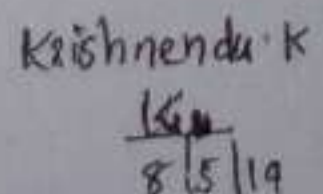 Krishnendu. K
8/5/19